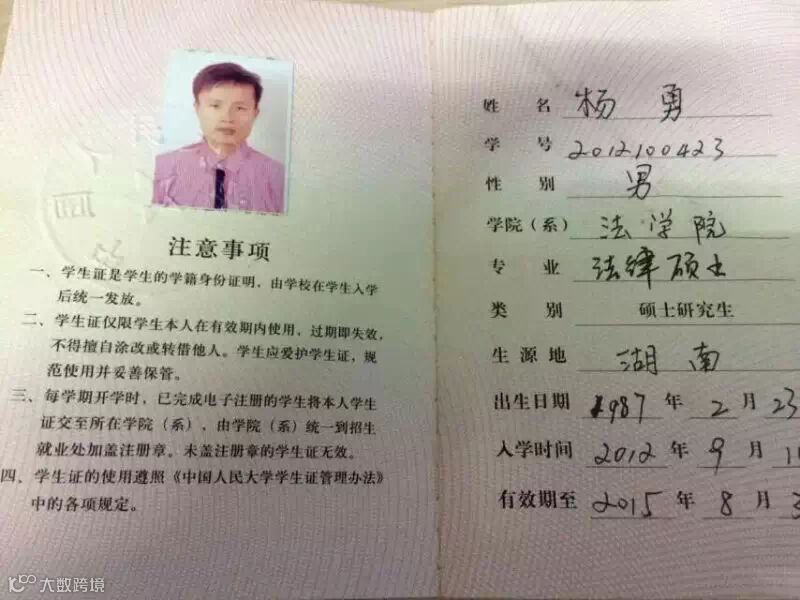 注意事项
一、学生证是学生的学籍身份证明，由学校在学生入学
后统一发放。
二、学生证仅限学生本人在有效期内使用，过期即失效，
不得擅自涂改或转借他人。学生应爱护学生证，规
范使用并妥善保管。
三、每学期开学时，已完成电子注册的学生将本人学生
证交至所在学院（系），由学院（系）统一到招生
就业处加盖注册章。未盖注册章的学生证无效。
四、学生证的使用遵照《中国人民大学学生证管理办法》
中的各项规定。
姓 名 杨勇
学 号 2012100423
性 别 男
学院（系） 法学院
专 业 法律硕士
类 别 硕士研究生
生源地 湖南
出生日期 1987 年 2 月 23
入学时间 2012 年 9 月
有效期至 2015 年 8 月
大数跨境